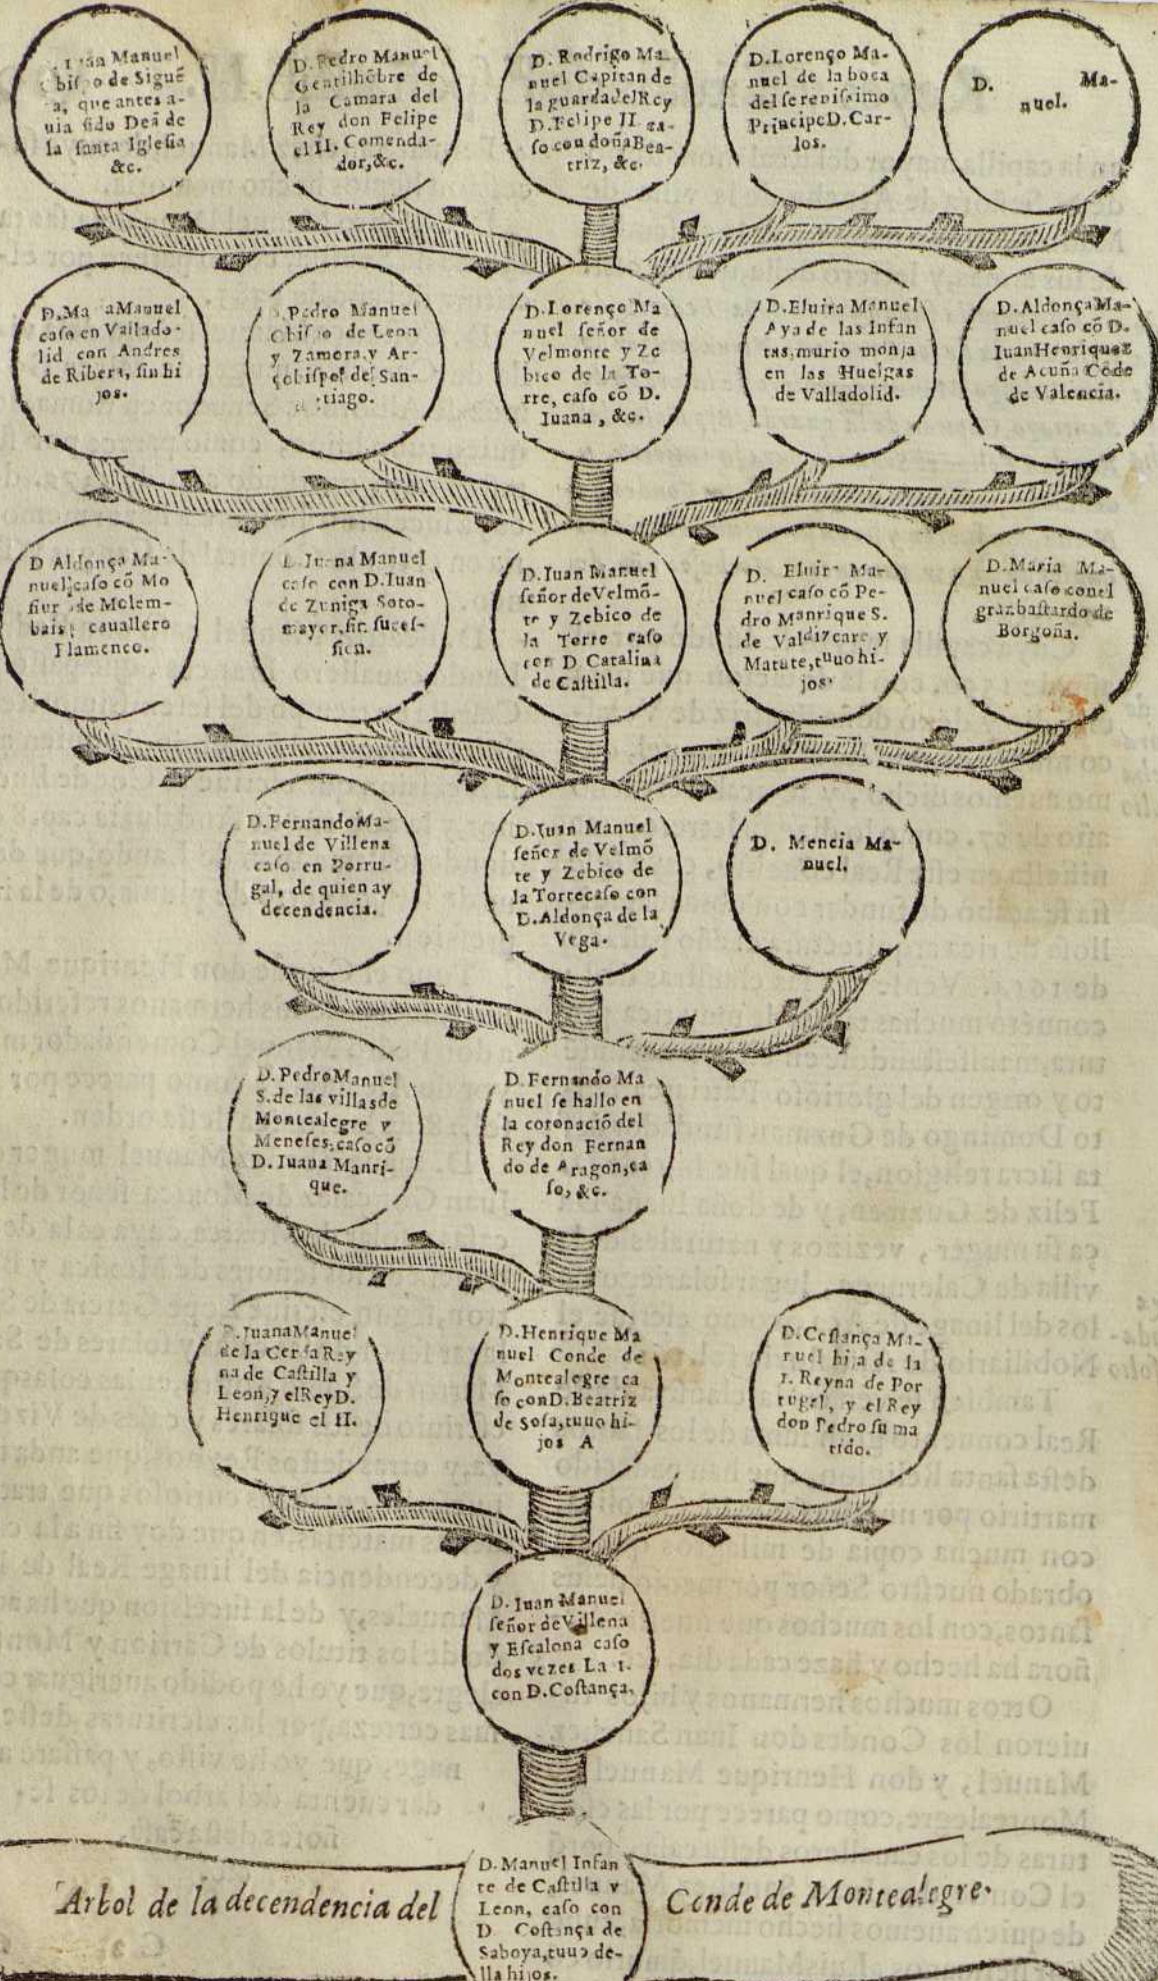 Iuan Manuel
Obispo de Siguẽ
a, que antes a-
uia sido Deã de
la santa Iglesia
&c.
D. Pedro Manuel
Gentilhõbre de
la Camara del
Rey don Felipe
el II. Comenda-
dor, &c.
D. Rodrigo Ma
nuel Capitan de
la guarda del Rey
D. Felipe II. ca-
so con doña Bea-
triz, &c.
D. Lorenço Ma-
nuel de la boca
del serenissimo
Principe D. Car-
los.
D. Ma-
nuel.
D. Ma aManuel
caso en Vallado-
lid con Andres
de Ribera, sin hi
jos.
Pedro Manuel
Obispo de Leon
y Zamora, y Ar-
çobispo de San-
tiago.
D. Lorenço Ma
nuel señor de
Velmonte y Ze
bico de la To-
rre, caso cõ D.
Iuana, &c.
D. Eluira Manuel
Aya de las Infan
tas, murio monja
en las Huelgas
de Valladolid.
D. Aldonça Ma-
nuel caso cõ D.
Iuan Henriquez
de Acuña Cõde
de Valencia.
D Aldonça Ma-
nuel, caso cõ Mo
siur de Molem-
bais, cauallero
Flamenco.
D. Iuana Manuel
caso con D. Iuan
de Zuniga Soto-
mayor, sin suces-
sion.
D. Iuan Manuel
señor de Velmõ-
te y Zebico de
la Torre caso
con D. Catalina
de Castilla.
D. Eluira Ma-
nuel caso cõ Pe-
dro Manrique S.
de Valdizcaray
Matute, tuuo hi-
jos.
D. Maria Ma-
nuel caso con el
gran bastardo de
Borgoña.
D. Fernando Ma-
nuel de Villena
caso en Porru-
gal, de quien ay
decendencia.
D. Iuan Manuel
señor de Velmõ
te y Zebico de
la Torre caso con
D. Aldonça de la
Vega.
D. Mencia Ma-
nuel.
D. Pedro Manuel
S. de las villas de
Montealegre y
Meneses, caso cõ
D. Iuana Manri-
que.
D. Fernando Ma
nuel se hallo en
la coronaciõ del
Rey don Fernan
do de Aragon, ca
so, &c.
D. Iuana Manuel
de la Cerda Rey
na de Castilla y
Leon, y el Rey D.
Henrique el II.
D. Henrique Ma
nuel Conde de
Montealegre ca
so con D. Beatriz
de Sosa, tuuo hi-
jos A
D. Costança Ma-
nuel hija de la
1. Reyna de Por
tugal, y el Rey
don Pedro su ma
rido.
D. Iuan Manuel
señor de Villena
y Escalona caso
dos vezes La 1.
con D. Costança.
D. Manuel Infan
te de Castilla y
Leon, caso con
D Costança de
Saboya, tuuo de-
lla hijos.
Arbol de la decendencia del Conde de Montealegre.